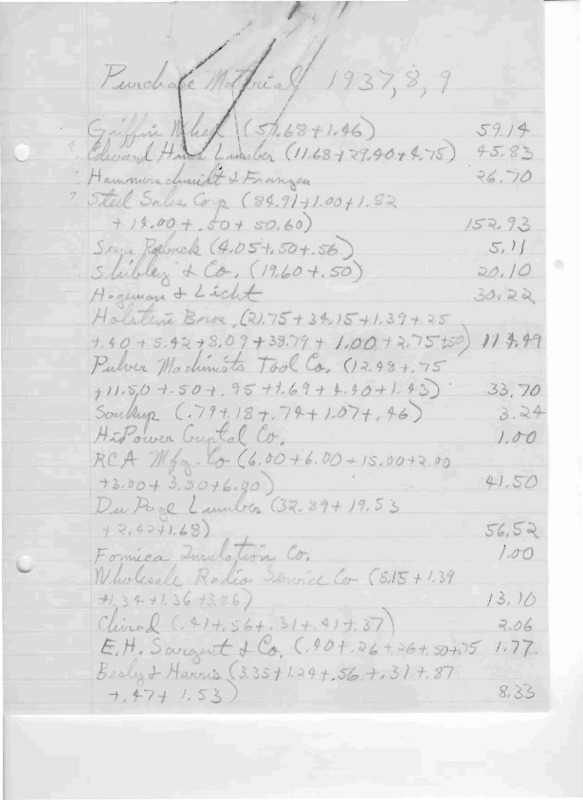 Purchase Material 1937, 8, 9
Griffin Wheel (57.68+1.46) 59.14
? Edward Hines Lumber (11.68+29.40+4.75) 45.83
? Hammerschmidt & Franzen 26.70
? Steel Sales Corp (84.91+1.00+1.82
+ 14.00+.50+50.60) 152.93
Sears Roebuck (4.05+.50+.56) 5.11
Shibley & Co. (19.60+.50) 20.10
Hageman & Licht 30.22
Holstein Bros. (21.75+34.15+1.39+.25
+.40+5.42+8.09+38.79+1.00+2.75+.50) 114.49
Pulver Machinists Tool Co. (12.48+.75
+11.50+.50+.95+1.69+4.40+1.43) 33.70
Soukup (.79+.18+.74+1.07+.46) 3.24
HiPower Crystal Co. 1.00
RCA Mfg. Co (6.00+6.00+15.00+2.00
+3.00+3.50+6.00) 41.50
Du Page Lumber (32.89+19.53
+2.42+1.68) 56.52
Formica Insulation Co. 1.00
Wholesale Radio Service Co (5.15+1.39
+1.34+1.36+3.86) 13.10
(.41+.56+.31+.41+.37) 2.06
E.H. Sargent & Co. (.40+.26+.26+.50+.75 1.77
Besly & Harris (3.35+1.24+.56+.31+.87
+.47+1.53) 8.33